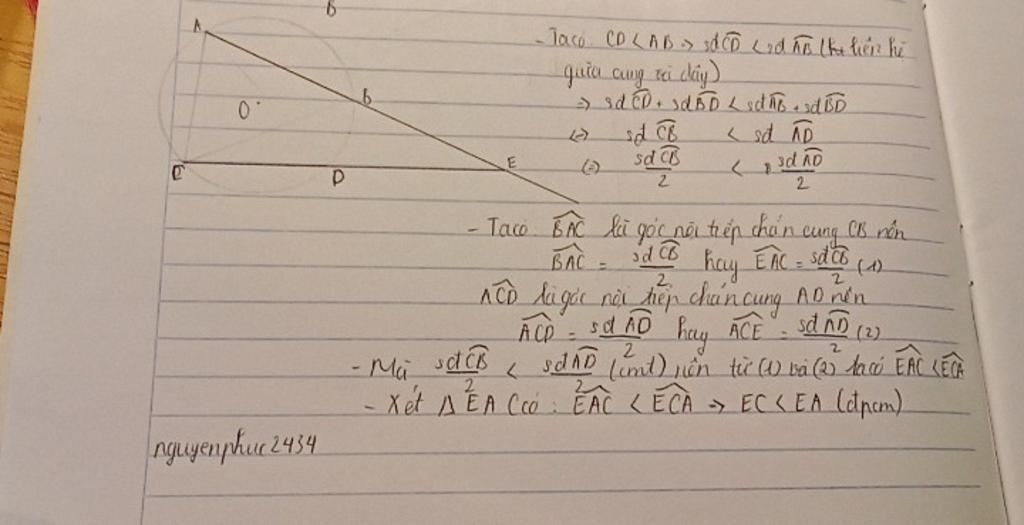 B
A
O
B
C
D
E
- Ta có CD < AB → sđC͡D < sđA͡B ( liên hệ
giữa cung và dây)
=> sđC͡D + sđB͡D < sđA͡B + sđB͡D
(=) sđ C͡B < sđ A͡D
(=) sđC͡B/2 < sđA͡D/2
- Ta có B̂AC là góc nội tiếp chắn cung CB nên
B̂AC = sđC͡B/2 hay ÊAC = sđC͡B/2 (1)
ÂCD là góc nội tiếp chắn cung AD nên
ÂCD = sđA͡D/2 hay ÂCE = sđA͡D/2 (2)
- Mà sđC͡B/2 < sđA͡D/2 (cmt) nên từ (1) và (2) ta có ÊAC < ÊCA
- Xét Δ EAC có : ÊAC < ÊCA → EC < EA (đpcm)
nguyenphuc2434